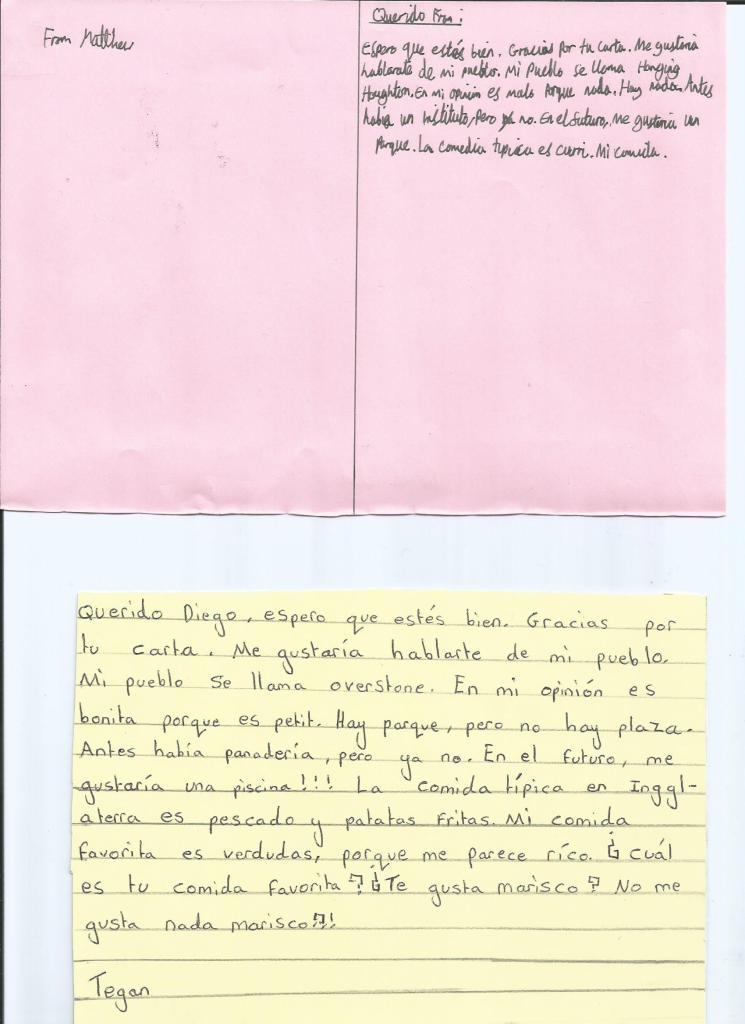 From Matthew
Querido Fran:
Espero que estés bien. Gracias por tu carta. Me gustaria
hablarate de mi pueblo. Mi Pueblo se llama Hanging
Houghton. En mi opinión es malo Porque nada. Hay nada. Antes
habia un instituto, Pero ya no. En el futuro, Me gustaria un
Parque. La comedia tipica es curri. Mi comida.
Querido Diego, espero que estés bien. Gracias por
tu carta. Me gustaría hablarte de mi pueblo.
Mi pueblo se llama overstone. En mi opinión es
bonita porque es petit. Hay parque, pero no hay plaza.
Antes había panadería, pero ya no. En el futuro, me
gustaría una piscina!!! La comida típica en Inggl-
aterra es pescado y patatas fritas. Mi comida
favorita es verdudas, porque me parece ríco. ¿Cuál
es tu comida favorita? ¿Te gusta marisco? No me
gusta nada marisco?!
Tegan